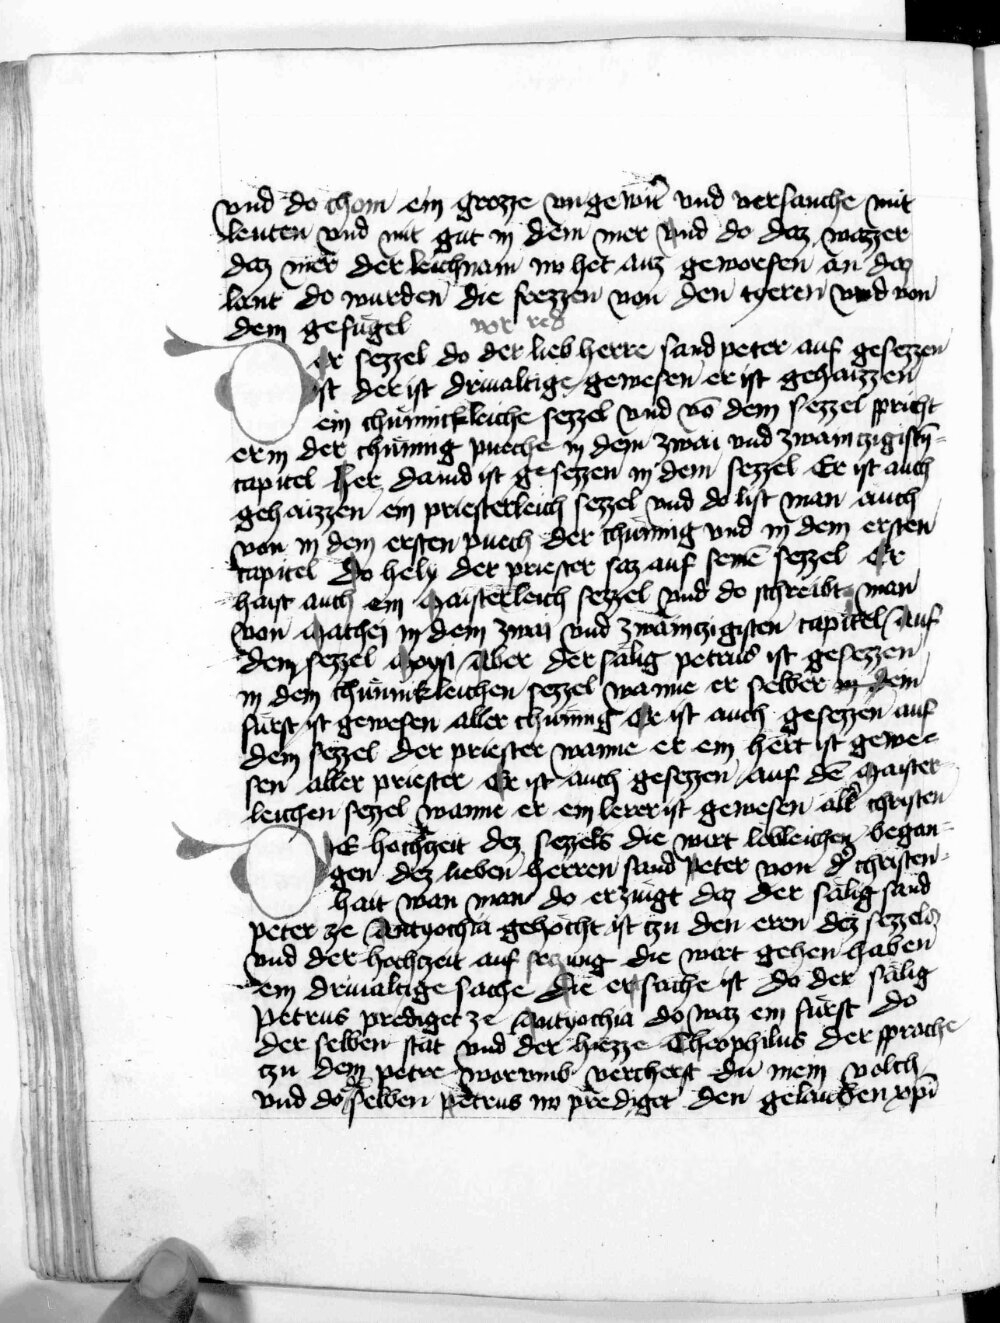 vnd do chom ein grozze vngewit̄ vnd versanche mit
leuten vnd mit gut in dem mer vnd do daz wazzer
daz mer der leichnam nv het auz geworfen an daz
lant do wurden die frezzen von den tyeren vnd von
dem gefügel vor red
Der sezzel do der lieb herre sand peter auf gesezzen
ist der ist driualtige gewesen er ist gehaizzen
ein chünnickleiche sezzel vnd vō dem sezzel spricht
er in der chünnig pueche in dem zwai vnd zwainczigistn̄
capitel her dauid ist gesezzen in dem sezzel Er ist auch
gehaizzen ein priesterleich sezzel vnd do list man auch
von in dem ersten puech der chünnig vnd in dem ersten
capitel Do hely der priester saz auf seinē sezzel Er
haist auch ein Maisterleich sezzel vnd do schreibt man
von Mathei in dem zwai vnd zwainczigisten capitel Auf
dem sezzel Moysi Aber der sälig petrus ist gesezzen
in dem chünnickleichen sezzel wanne er selber ein
fürst ist gewesen aller chünnig Er ist auch gesezzen auf
dem sezzel der priester wanne er ein hert ist gewe-
sen aller priester Er ist auch gesezzen auf dē Maister-
leichen sezzel wanne er ein lerer ist gewesen all̄ christen
Die hochzeit dez sezzels die wirt lobleichen began-
gen dez lieben herren sand Peter von d̄ christen-
hait wan man do erzaigt daz der sälig sand
peter ze Antyochia gehöcht ist czu den eren dez sezzels
vnd der hochzeit auf seczung die wirt gehen haben
ein driualtige sache Die er sache ist do der sälig
Petrus prediget ze Antyochia do waz ein fürst do
der selben stat vnd der hiezze Theophilus der sprache
czu dem petre worvmb vercherst du mein volch
vnd do selben petrus nv prediget den gelauben xp̄i